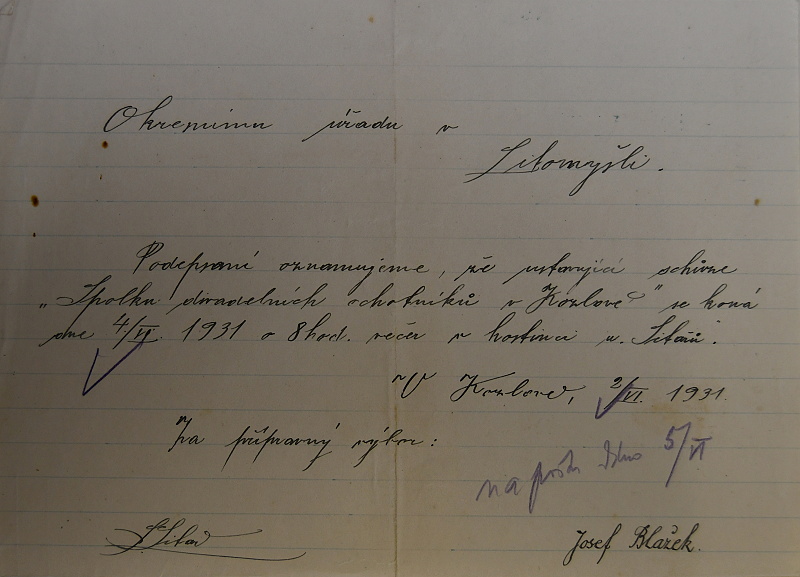 Okresnímu úřadu v
Litomyšli.
Podepsaní oznamujeme, že ustavující schůze
„Spolku divadelních ochotníků v Kozlově" se koná
dne 4/VI. 1931 o 8 hod. večer v hostinci u.
V Kozlově, 2/VI. 1931.
Za přípravný výbor:
na 5/VI
Josef Blažek.